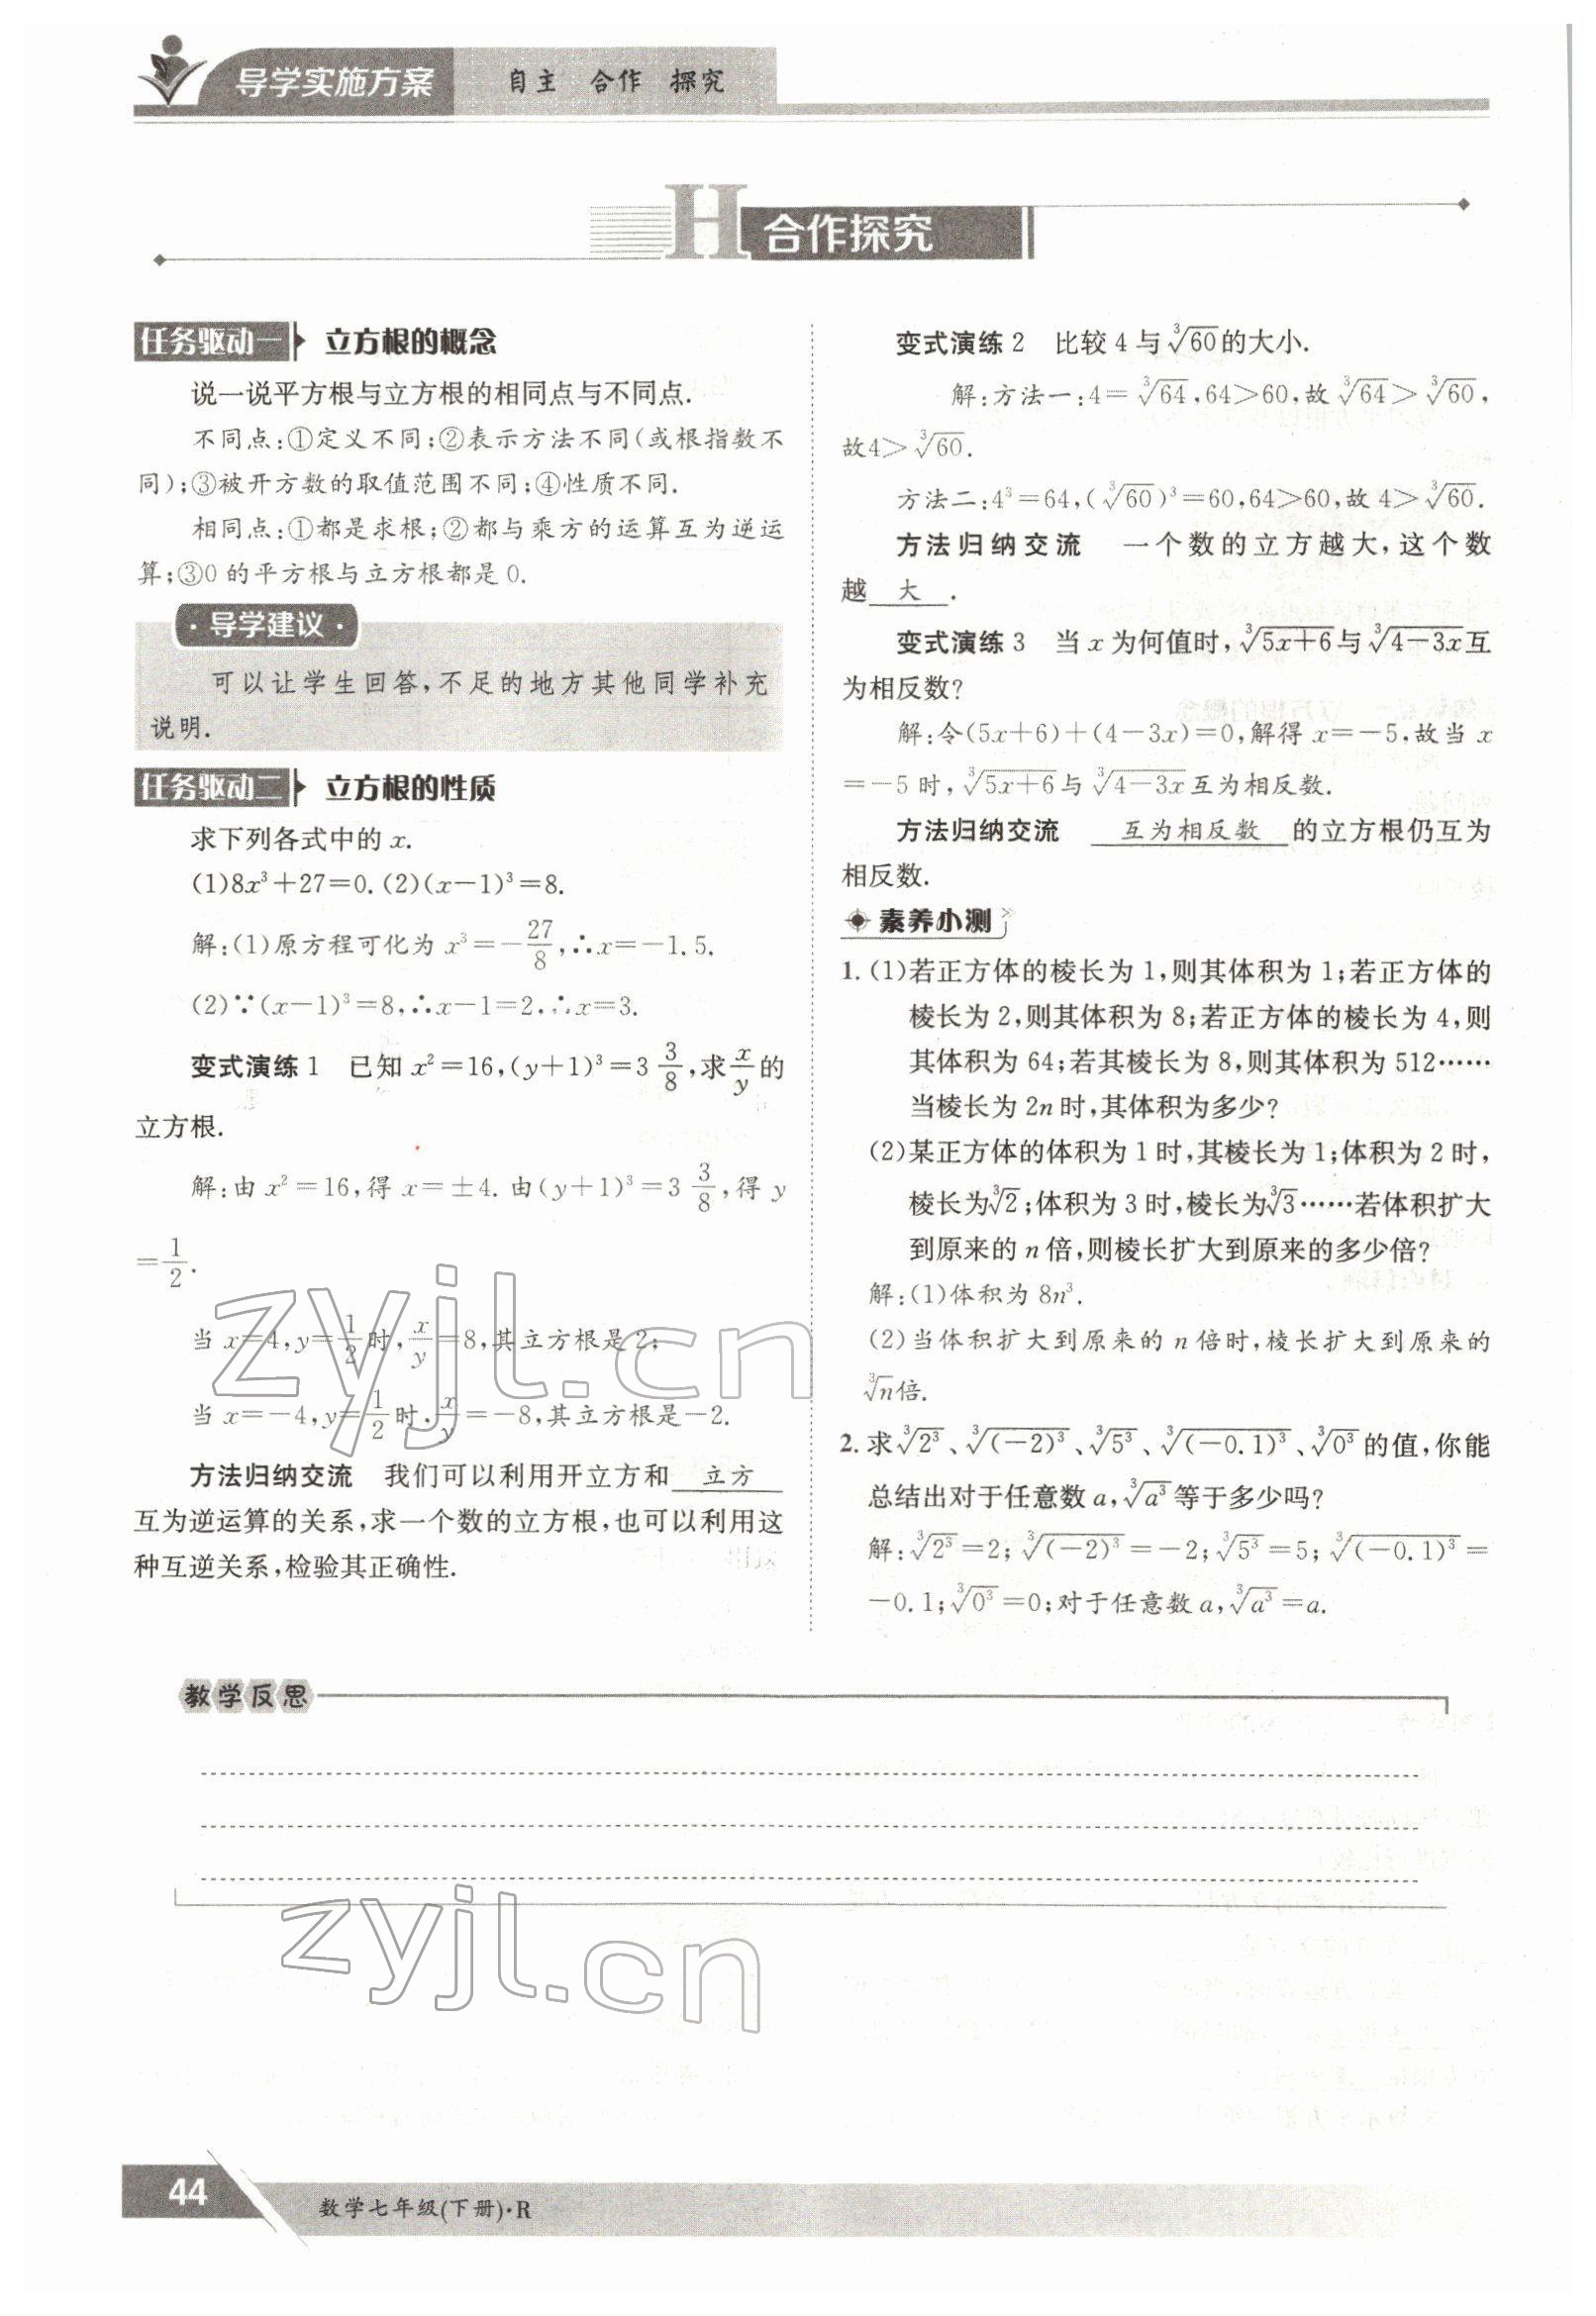 导学实施方案 自主 合作 探究
H 合作探究
任务驱动一 立方根的概念
说一说平方根与立方根的相同点与不同点.
不同点:①定义不同;②表示方法不同(或根指数不
同);③被开方数的取值范围不同;④性质不同.
相同点:①都是求根;②都与乘方的运算互为逆运
算;③0的平方根与立方根都是0.
·导学建议·
可以让学生回答,不足的地方其他同学补充
说明.
任务驱动二 立方根的性质
求下列各式中的 x.
(1)8x³+27=0.(2)(x-1)³=8.
解:(1)原方程可化为 x³=-27/8,∴x=-1.5.
(2)∵(x-1)³=8,∴x-1=2,∴x=3.
变式演练1 已知 x²=16,(y+1)³=3 3/8,求x/y的
立方根.
解:由 x²=16,得 x=±4.由(y+1)³=3 3/8,得 y
=1/2.
当 x=4,y=1/2时,x/y=8,其立方根是2;
当 x=-4,y=1/2时,x/y=-8,其立方根是-2.
方法归纳交流 我们可以利用开立方和 立方
互为逆运算的关系,求一个数的立方根,也可以利用这
种互逆关系,检验其正确性.
变式演练2 比较4与∛60的大小.
解:方法一:4=∛64,64>60,故∛64>∛60,
故4>∛60.
方法二:4³=64,(∛60)³=60,64>60,故 4>∛60.
方法归纳交流 一个数的立方越大,这个数
越 大 .
变式演练3 当 x 为何值时,∛(5x+6)与∛(4-3x)互
为相反数?
解:令(5x+6)+(4-3x)=0,解得 x=-5,故当 x
=-5时,∛(5x+6)与∛(4-3x)互为相反数.
方法归纳交流 互为相反数 的立方根仍互为
相反数.
素养小测
1.(1)若正方体的棱长为1,则其体积为1;若正方体的
棱长为2,则其体积为8;若正方体的棱长为4,则
其体积为64;若其棱长为8,则其体积为512……
当棱长为2n时,其体积为多少?
(2)某正方体的体积为1时,其棱长为1;体积为2时,
棱长为∛2;体积为3时,棱长为∛3……若体积扩大
到原来的 n 倍,则棱长扩大到原来的多少倍?
解:(1)体积为 8n³.
(2)当体积扩大到原来的 n 倍时,棱长扩大到原来的
∛n倍.
2.求∛2³、∛(-2)³、∛5³、∛(-0.1)³、∛0³的值,你能
总结出对于任意数 a,∛a³等于多少吗?
解:∛2³=2;∛(-2)³=-2;∛5³=5;∛(-0.1)³=
-0.1;∛0³=0;对于任意数 a,∛a³=a.
教学反思
zyjl.cn
zyjl.cn
44 数学七年级(下册)·R